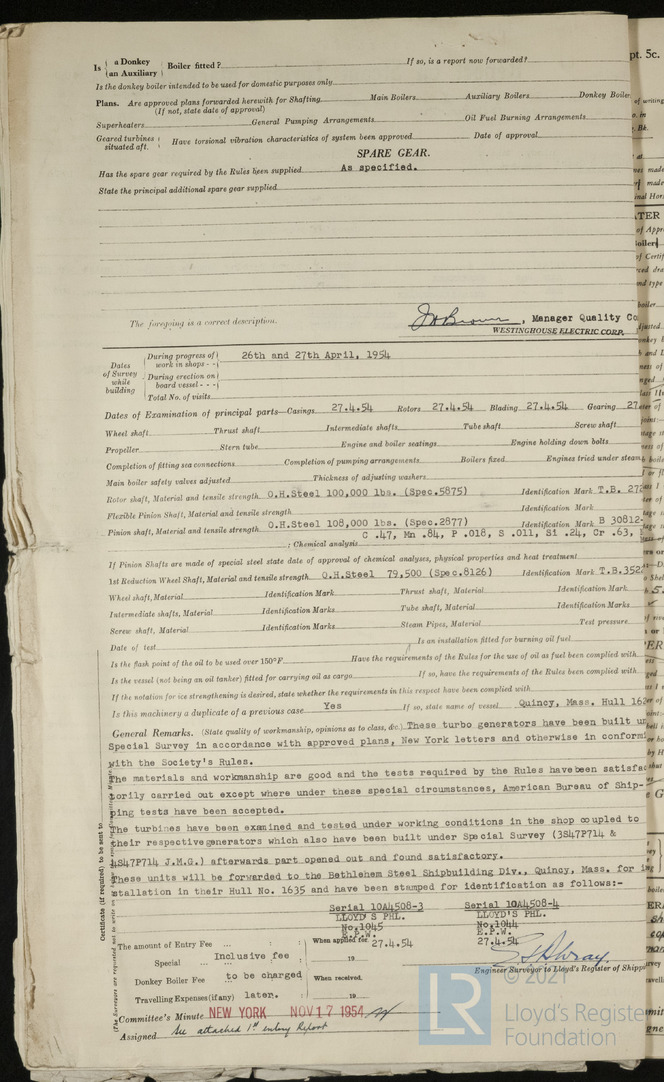 Is { a Donkey / an Auxiliary } Boiler fitted? If so, is a report now forwarded?
Is the donkey boiler intended to be used for domestic purposes only
Plans. Are approved plans forwarded herewith for Shafting Main Boilers Auxiliary Boilers Donkey Boiler
(If not, state date of approval)
Superheaters General Pumping Arrangements Oil Fuel Burning Arrangements
Geared turbines situated aft. } Have torsional vibration characteristics of system been approved Date of approval
SPARE GEAR.
Has the spare gear required by the Rules been supplied As specified.
State the principal additional spare gear supplied
The foregoing is a correct description.
J Brown, Manager Quality Co
WESTINGHOUSE ELECTRIC CORP.
Dates of Survey while building
During progress of work in shops - - 26th and 27th April, 1954
During erection on board vessel - - -
Total No. of visits
Dates of Examination of principal parts—Casings 27.4.54 Rotors 27.4.54 Blading 27.4.54 Gearing 27
Wheel shaft Thrust shaft Intermediate shafts Tube shaft Screw shaft
Propeller Stern tube Engine and boiler seatings Engine holding down bolts
Completion of fitting sea connections Completion of pumping arrangements Boilers fixed Engines tried under steam
Main boiler safety valves adjusted Thickness of adjusting washers
Rotor shaft, Material and tensile strength O.H.Steel 100,000 lbs. (Spec.5875) Identification Mark T.B. 272
Flexible Pinion Shaft, Material and tensile strength Identification Mark
Pinion shaft, Material and tensile strength O.H.Steel 108,000 lbs. (Spec.2877) Identification Mark B 30812-
: Chemical analysis C .47, Mn .84, P .018, S .011, Si .24, Cr .63,
If Pinion Shafts are made of special steel state date of approval of chemical analyses, physical properties and heat treatment
1st Reduction Wheel Shaft, Material and tensile strength O.H.Steel 79,500 (Spec.8126) Identification Mark T.B.352
Wheel shaft, Material Identification Mark Thrust shaft, Material Identification Mark
Intermediate shafts, Material Identification Marks Tube shaft, Material Identification Marks
Screw shaft, Material Identification Marks Steam Pipes, Material Test pressure
Date of test Is an installation fitted for burning oil fuel
Is the flash point of the oil to be used over 150°F. Have the requirements of the Rules for the use of oil as fuel been complied with
Is the vessel (not being an oil tanker) fitted for carrying oil as cargo If so, have the requirements of the Rules been complied with
If the notation for ice strengthening is desired, state whether the requirements in this respect have been complied with
Is this machinery a duplicate of a previous case Yes If so, state name of vessel Quincy, Mass. Hull 162
General Remarks. (State quality of workmanship, opinions as to class, &c.) These turbo generators have been built un
Special Survey in accordance with approved plans, New York letters and otherwise in conformi
with the Society's Rules.
The materials and workmanship are good and the tests required by the Rules have been satisfac
torily carried out except where under these special circumstances, American Bureau of Ship-
ping tests have been accepted.
The turbines have been examined and tested under working conditions in the shop coupled to
their respective generators which also have been built under Special Survey (3S47P714 &
4S47P714 J.M.G.) afterwards part opened out and found satisfactory.
These units will be forwarded to the Bethlehem Steel Shipbuilding Div., Quincy, Mass. for in
stallation in their Hull No. 1635 and have been stamped for identification as follows:-
Serial 10A4508-3 Serial 10A4508-4
LLOYD'S PHL. LLOYD'S PHL.
No.1045 No.1044
E.P.W. E.P.W.
27.4.54 27.4.54
Certificate (if required) to be sent to
The amount of Entry Fee ... : When applied for
Special ... Inclusive fee : 19
Donkey Boiler Fee to be charged : When received,
Travelling Expenses (if any) later. : 19
Engineer Surveyor to Lloyd's Register of Shipp
Committee's Minute NEW YORK NOV 17 1954
Assigned See attached 1st entry Report
pt. 5c.
LR
© 2021
Lloyd's Register
Foundation